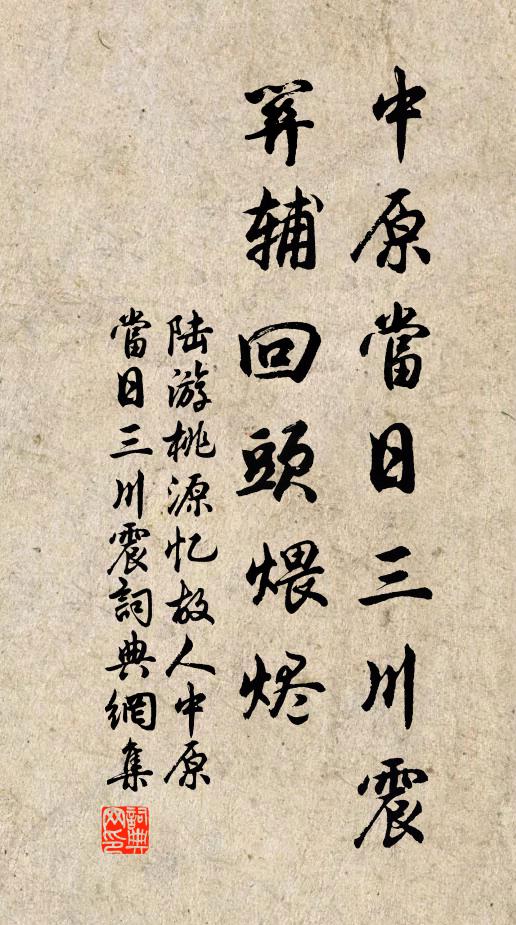 中原當日三川震
关辅回頭煨烬
陆游桃源忆故人中原
當日三川震詞典網集
詞典网印